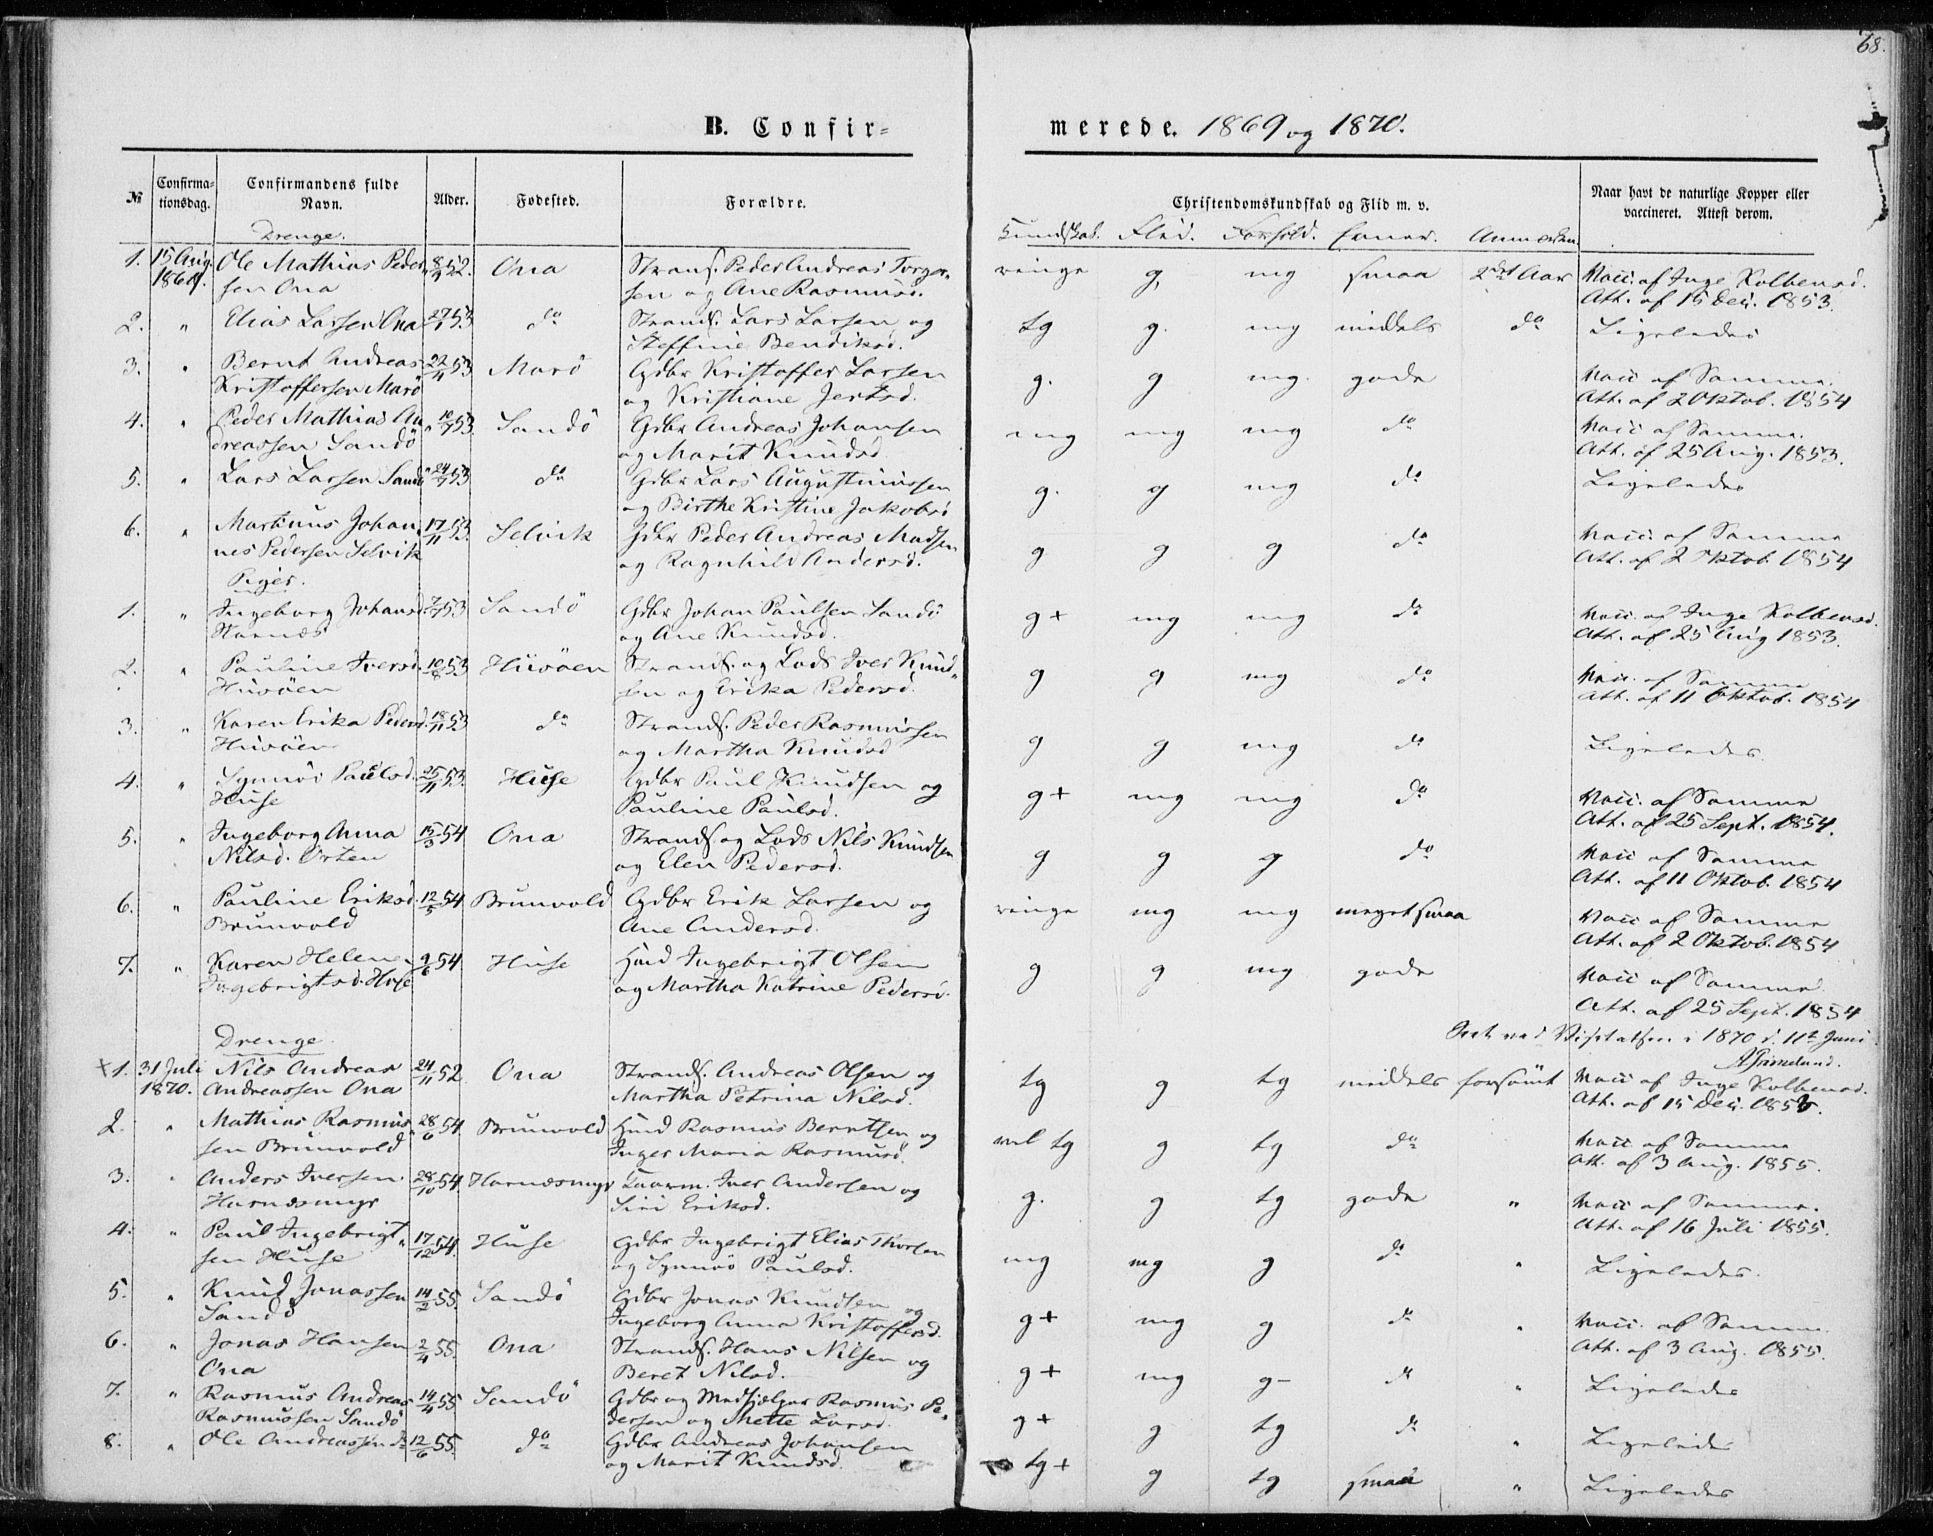 68.
B. Confirmerede. 1869 og 1870.
№ Confirmationsdag. Confirmandens fulde Navn. Alder. Fødested. Forældre. Christendomskundskab og Flid m. v. Naar havt de naturlige Kopper eller vaccineret. Attest derom.
Drenge. Kundskab. Flid. Forhold. Evner.
1. 15 Aug. 1869. Ole Mathias Pedersen Ona 52. Ona Strands. Peder Andreas
og Ane Rasmusd. ringe g. mg smaa 2det Aar Vacc. af Inge Kolbensd.
Att. af 15 Dec. 1853.
2. " Elias Larsen Ona 27/1 53 do Strands. Lars Larsen og
Steffine Bendiksd. tg g. mg middels do Ligeledes
3. " Bernt Andreas
Kristoffersen Marö 22/4 53 Marö Gdbr Kristoffer Larsen
og Kristiane g. g mg. gode Vacc af Samme.
Att. af 2 Oktob. 1854
4. " Peder Mathias Andreassen Sandö 10/7 53 Sandö Gdbr Andreas Johansen
og Marit Knudsd. mg mg mg do Vacc af Samme.
Att. af 25 Aug. 1853.
5. " Lars Larsen Sandö 24/7 53 do Gdbr Lars Augustinussen
og Birthe Kristine Jakobsd g. g mg do Ligeledes
6. " Martinus Johannes Pedersen Selvik 17/11 53. Selvik Gdbr Peder Andreas Madsen
og Ragnhild Andersd. g g g do Vacc. af Samme
Att. af 2 Oktob. 1854
Piger.
1. " Ingeborg Johansd.
7/7 53 Sandö Gdbr Johan Paulsen Sandö
og Ane Knudsd. g+ mg mg do Vacc. af Inge Kolbensd.
Att. af 25 Aug 1853.
2. " Pauline Iversd.
Husöen 10/8 53 Husöen Strands. og Lods Iver Knudsen og Erika Pedersd. g g mg do Vacc. af Samme
Att. af 11 Oktob. 1854
3. " Karen Erika Pedersd.
Husöen 18/11 53 do Strands. Peder Rasmussen
og Martha Knudsd g g mg do Ligeledes.
4. " Synnöv Paulsd.
Huse 25/11 53. Huse Gdbr Paul Knudsen og
Pauline Paulsd. g+ mg mg do Vacc. af Samme
Att. af 25 Sept. 1854.
5. " Ingeborg Anna
Nilsd. Orten 15/3 54 Ona Strands. og Lods Nils Knudsen
og Elen Pedersd. g g g do Vacc af Samme
Att. af 11 Oktob. 1854
6. " Pauline Eriksd.
Brunvold 12/5 54 Brunvold Gdbr Erik Larsen og
Ane Andersd. ringe mg mg meget smaa Vacc af Samme
Att. af 2 Oktob. 1854
7. " Karen Helene
Ingebrigtsd. Huse 9/6 54 Huse Huusmd Ingebrigt Olsen
og Martha Katrine Pedersd. g g mg gode Vacc af Samme.
Att. af 25 Sept. 1854
Seet ved Visitatsen i 1870 d. 11te Juni
A Grimelund.
Drenge
+1. 31 Juli 1870. Nils Andreas
Andreassen Ona 24/11 52 Ona Strands. Andreas Olsen og
Martha Petrina Nilsd. tg g tg middels forsömt Vacc af Inge Kolbensd.
Att. af 15 Dec. 1853.
2. " Mathias Rasmussen Brunvold 28/6 54 Brunvold Huusmd Rasmus Berntsen og
Inger Maria Rasmusd. vel tg g tg do Vacc af Samme
Att. af 3 Aug. 1855.
3. " Anders Iversen
Harnæsmyr 28/10 54 Harnæsmyr Iver Andersen og
Siri Eriksd. g. g tg gode " Vacc af Samme.
Att. af 16 Juli 1855.
4. " Paul Ingebrigtsen Huse 17/12 54. Huse Gdbr Ingebrigt Elias Thorsen
og Synnöv Paulsd. mg mg g do " Ligeledes.
5. " Knud Jonassen
Sandö 14/2 55. Sandö Gdbr Jonas Knudsen og
Ingeborg Anna Kristoffersd. g+ mg g do " Vacc. af Samme.
Att. af 3 Aug. 1855.
6. " Jonas Hansen
Ona 2/4 55. Ona Strands. Hans Nilsen og
Beret Nilsd. g+ mg g- do " Ligeledes
7. " Rasmus Andreas
Rasmussen Sandö 14/4 55 Sandö Gdbr og Medhjælper Rasmus Pedersen og Mette Larsd. g+ g tg do " Ligeledes
8. " Ole Andreassen do 12/6 55. do Gdbr Andreas Johansen
og Marit Knudsd. tg+ g tg smaa " Ligeledes